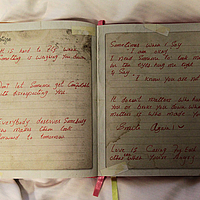 It is hard to
something is
Don't let Someone get Comfortable
with disrespecting You.
Everybody deserves Somebody
who makes them look
forward to tomorrow.
Sometimes When I Say
"I am okay"
I need Someone to look me
in the eyes, hug me tight
& Say
"I know you are not"
It doesn't matter who
you or
matters is who made you
Smile Again :~
Love is Caring for each
other even when you're Angry.